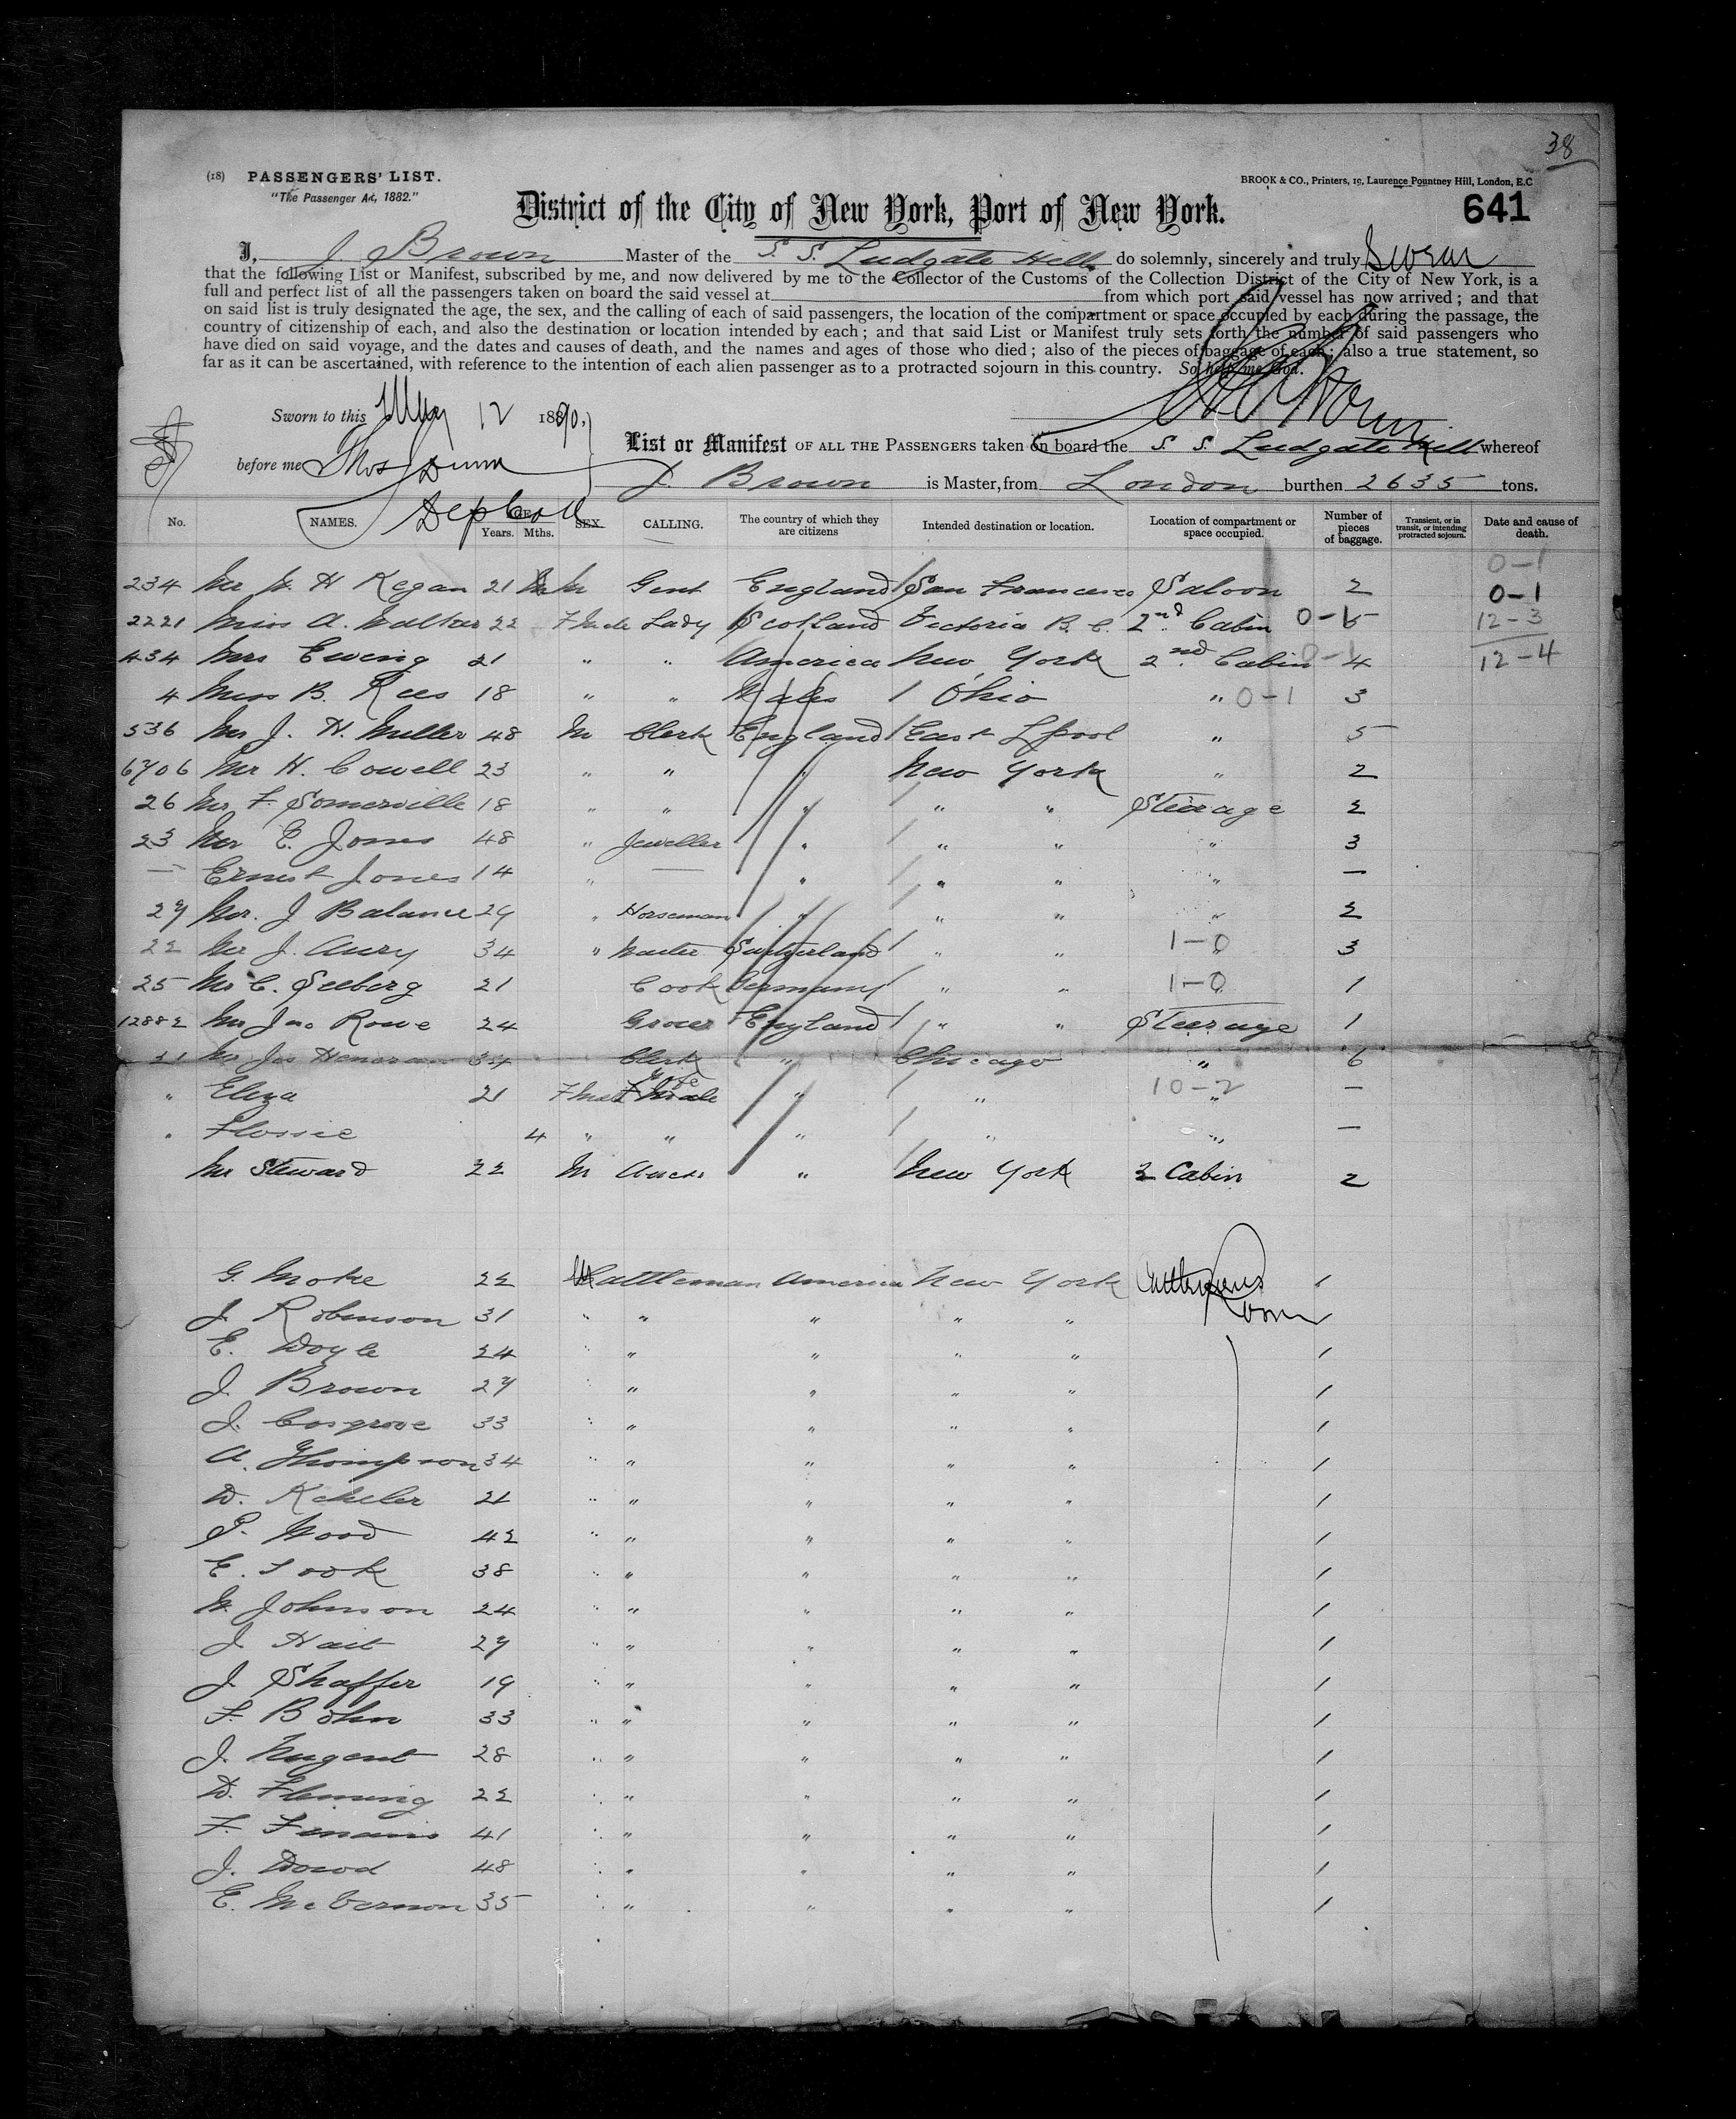 38
(18) PASSENGERS' LIST.
"The Passenger Act, 1882."
BROOK & CO., Printers, 19, Laurence Pountney Hill, London, E.C
District of the City of New York, Port of New York.
641
I, J. Brown Master of the S. S. Ludgate Hill do solemnly, sincerely and truly Swear
that the following List or Manifest, subscribed by me, and now delivered by me to the Collector of the Customs of the Collection District of the City of New York, is a
full and perfect list of all the passengers taken on board the said vessel at from which port said vessel has now arrived; and that
on said list is truly designated the age, the sex, and the calling of each of said passengers, the location of the compartment or space occupied by each during the passage, the
country of citizenship of each, and also the destination or location intended by each; and that said List or Manifest truly sets forth the number of said passengers who
have died on said voyage, and the dates and causes of death, and the names and ages of those who died; also of the pieces of baggage of each; also a true statement, so
far as it can be ascertained, with reference to the intention of each alien passenger as to a protracted sojourn in this country. So help me God.
Sworn to this May 12 1890,
before me Thos Dunn
Dep Coll
List or Manifest OF ALL THE PASSENGERS taken on board the S. S. Ludgate Hill whereof
J. Brown is Master, from London burthen 2635 tons.
No. NAMES. AGE. Years. Mths. SEX. CALLING. The country of which they are citizens Intended destination or location. Location of compartment or space occupied. Number of pieces of baggage. Transient, or in transit, or intending protracted sojourn. Date and cause of death.
0-1
234 Mr W. H Regan 21 M Gent England San Francisco Saloon 2 0-1
2221 Miss A. Walker 22 Fmale Lady Scotland Victoria B. C. 2nd Cabin 0-1 5 12-3
434 Mrs Ewing 21 " " America New York 2nd Cabin 0-1 4 12-4
4 Miss B. Rees 18 " " Wales Ohio " 0-1 3
536 Mr J. H. Miller 48 M Clerk England East Lpool " 5
6706 Mr H. Cowell 23 " " " New York " 2
26 Mr F. Somerville 18 " " " " " Steerage 2
23 Mr E. Jones 48 " Jeweller " " " " 3
— Ernest Jones 14 " — " " " " —
27 Mr. J Balance 29 " Horseman " " " " 2
22 Mr J. Aury 34 " Waiter Switzerland " " 1-0 " 3
25 Mr C. Seeberg 21 Cook Germany " " 1-0 " 1
12882 Mr Jno Rowe 24 Grocer England " " Steerage 1
21 Mr Jos 34 Clerk " Chicago " 6
" Eliza 21 Fmale Wife " " 10-2 " —
" Flossie 4 " " " " " —
Mr Steward 22 M " New York 2 Cabin 2
G. Moke 22 M Cattleman America New York Cattlemens Room 1
J. Robinson 31 " " " " " 1
E. Doyle 24 " " " " " 1
J. Brown 27 " " " " " 1
J. Cosgrove 33 " " " " " 1
A. Thompson 34 " " " " " 1
D. 21 " " " " " 1
P. Wood 42 " " " " " 1
E. 38 " " " " " 1
W. Johnson 24 " " " " " 1
J. 27 " " " " " 1
J. Shaffer 19 " " " " " 1
F. Bohn 33 " " " " " 1
J. Nugent 28 " " " " " 1
D. Fleming 22 " " " " " 1
F. 41 " " " " " 1
J. Dowd 48 " " " " " 1
E. 35 " " " " " 1